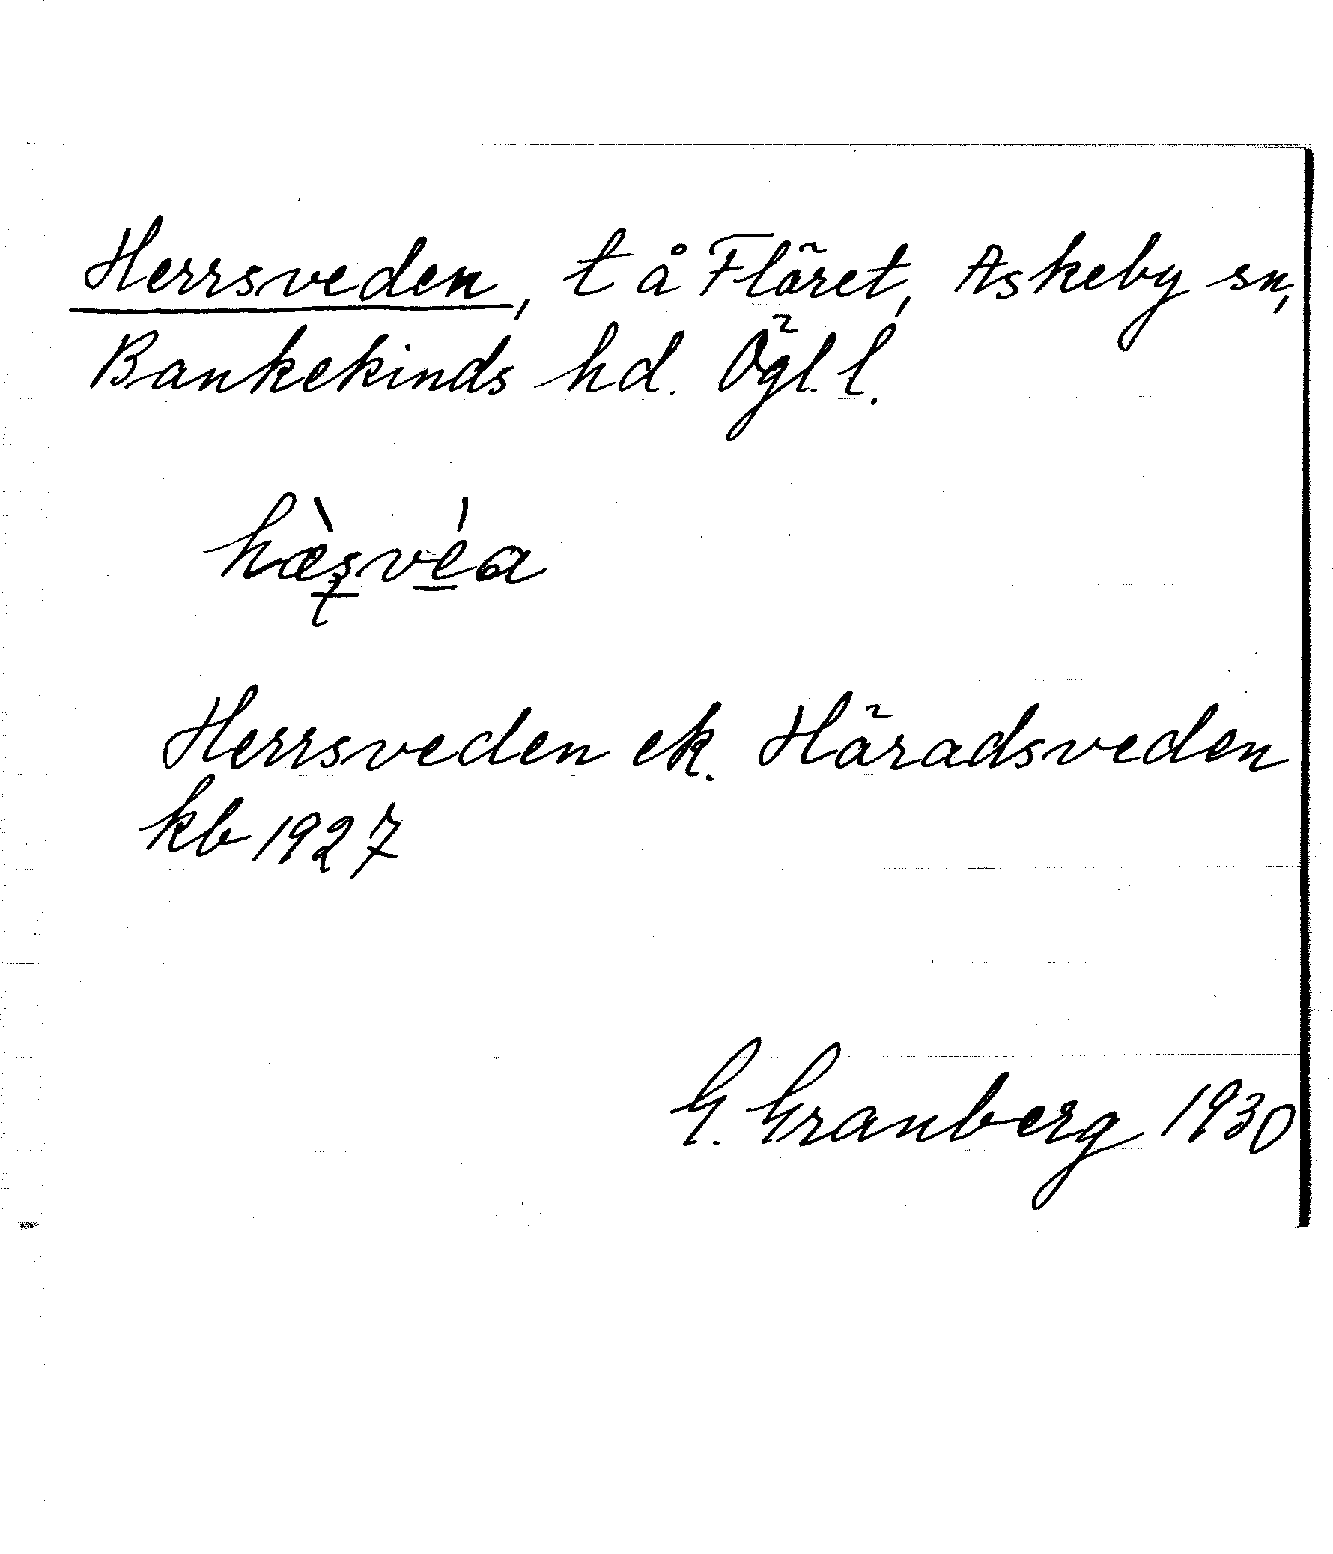 Herrsveden, t å Fläret, Askeby sn,
Bankekinds hd. Ögl. l.
hæ̀ʂvéa
Herrsveden ek. Häradsveden
kb 1927
G. Granberg 1930